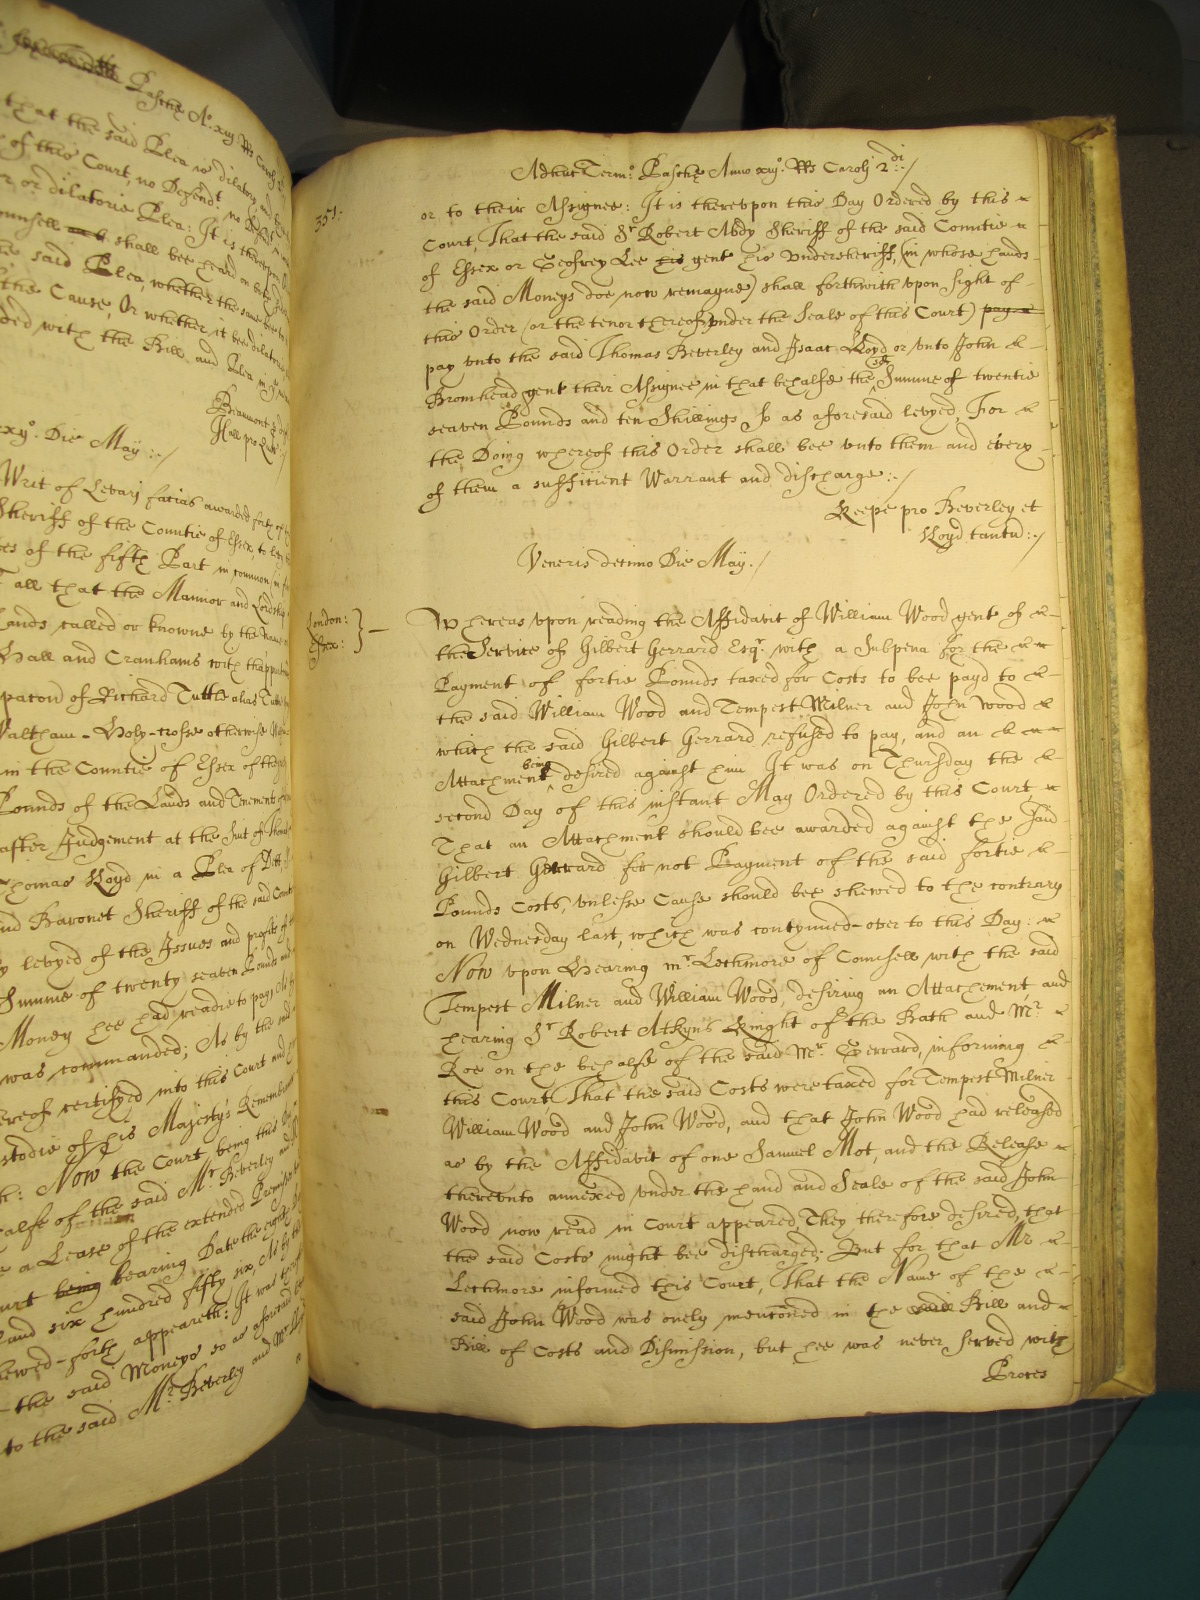 Paschę Ao. xiij Rs Caroli
that the said Plea is dilatory, and
of this Court, no Defendt. no
or, or dilatorie Plea: It is thereupon
ounsell shall bee heard on both
he said Plea, whether the same bee
the Cause, Or whether it bee dilatorie
ded with the Bill and Plea in
Beaumont
Hall pro
xxo. Die May :-/
Writ of Levarj facias awarded forth of
Sheriff of the Countie of Essex, to levy
es of the fifth Part in common in
all that the Mannor and Lordship
Lands called or knowne by the Name
Hall and Cranhams with thappurten
pacon) of Richard Tuttle alias Tuttle
Waltham-Holy-crosse otherwise
in the Countie of Essex of the
Pounds of the Lands and Tenements
after Judgement at the Suit of Thomas
Thomas Lloyd in a Plea of Debt
nd Baronet Sheriff of the said Countie
y levyed of the Issues and profits of
Summe of twenty seaven Pounds and
Money hee had readie to pay, As
was commanded; As by the said
ereof certifyed into this Court and
stodie of his Majesty's Remembran
h: Now the Court being this Day
alfe of the said Mr Beverley and
e a Lease of the extended Premisses
urt being bearing Date the eight
and six hundred fifty six, As by the
ewed-forth appeareth: It was
the said Moneys so as aforesaid
to the said Mr. Beverley and Mr
351.
Adhuc Termo: Paschę Anno xiijo. Rs Carolj 2di:/
or to their Assignee: It is thereupon this Day Ordered by this
Court, That the said Sr Robert Abdy Sheriff of the said Countie
of Essex or Geofrey Lee his gent his Undersheriff, (in whose hands
the said Moneys doe now remayne) shall forthwith upon sight of
this Order (or the tenor thereof under the Seale of this Court) pay
pay unto the said Thomas Beverley and Isaac Lloyd or unto John
Bromhead gent their Assignee in that behalfe the sd Summe of twentie
seaven Pounds and ten Shillings so as aforesaid levyed, For
the Doing whereof this Order shall bee unto them and every
of them a sufficient Warrant and discharge :-/
Keepe pro Beverley et
Lloyd tantu :-/
Veneris decimo Die May :/
London:
Essex: } -
Whereas upon reading the Affidavit of William Wood gent of
the Service of Gilbert Gerrard Esqr. with a Subpena for the
Payment of fortie Pounds taxed for Costs to bee payd to
the said William Wood and Tempest Milner and John Wood
which the said Gilbert Gerrard refused to pay, and an
Attachment being desired against him It was on Thursday the
second Day of this instant May Ordered by this Court,
That an Attachment should bee awarded against the said
Gilbert Gerrard for not Payment of the said fortie
Pounds Costs, unlesse Cause should bee shewed to the contrary
on Wednesday last, which was contynued-over to this Day:
Now upon Hearing mr. Lechmore of Counsell with the said
Tempest Milner and William Wood, desiring an Attachement and
hearing Sr Robert Atkyns Knight of the Bath and Mr.
Roe on the behalfe of the said Mr. Gerrard, informing
this Court That the said Costs were taxed for Tempest Milner
William Wood and John Wood, and that John Wood had released
as by the Affidavit of one Samuel Mot, and the Release
thereunto annexed under the hand and Seale of the said John
Wood now read in Court appeared, They therefore desired, that
the said Costs might bee discharged; But for that Mr
Lechmore informed this Court, That the Name of the
said John Wood was onely mentoned in the said Bill and
Bill of Costs and Dismission, but hee was never served with
Proces